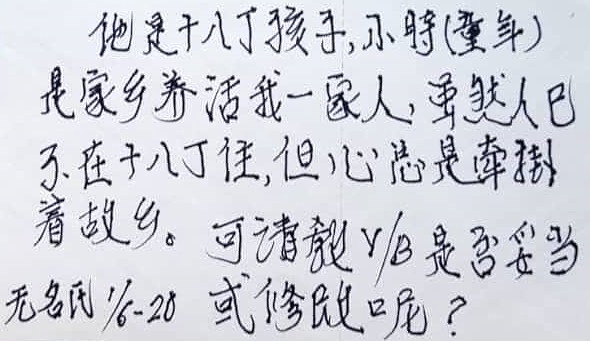 他是十八丁孩子,小時(童年)
是家乡养活我一家人,虽然人已
不在十八丁住,但心总是牵掛
着故乡。可请教Y/B是否妥当
无名氏1/6-20 或修改呢?